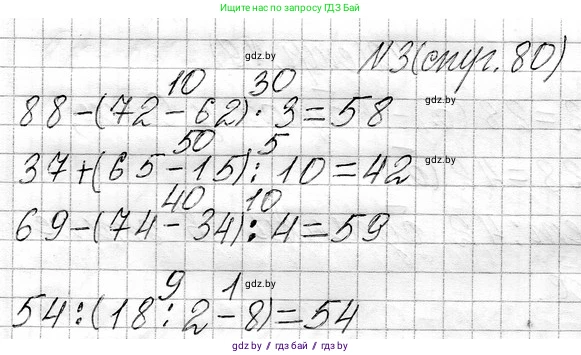 Ищите нас по запросу ГДЗ Бай
gdz.by
№3(стр. 80)
10 30
gdz.by
88-(72-62)·3=58
50 5
gdz.by
37+(65-15):10=42
40 10
69-(74-34):4=59
9 1
gdz.by
54:(18:2-8)=54
gdz.by / гдз.бел / гдзбай.бел